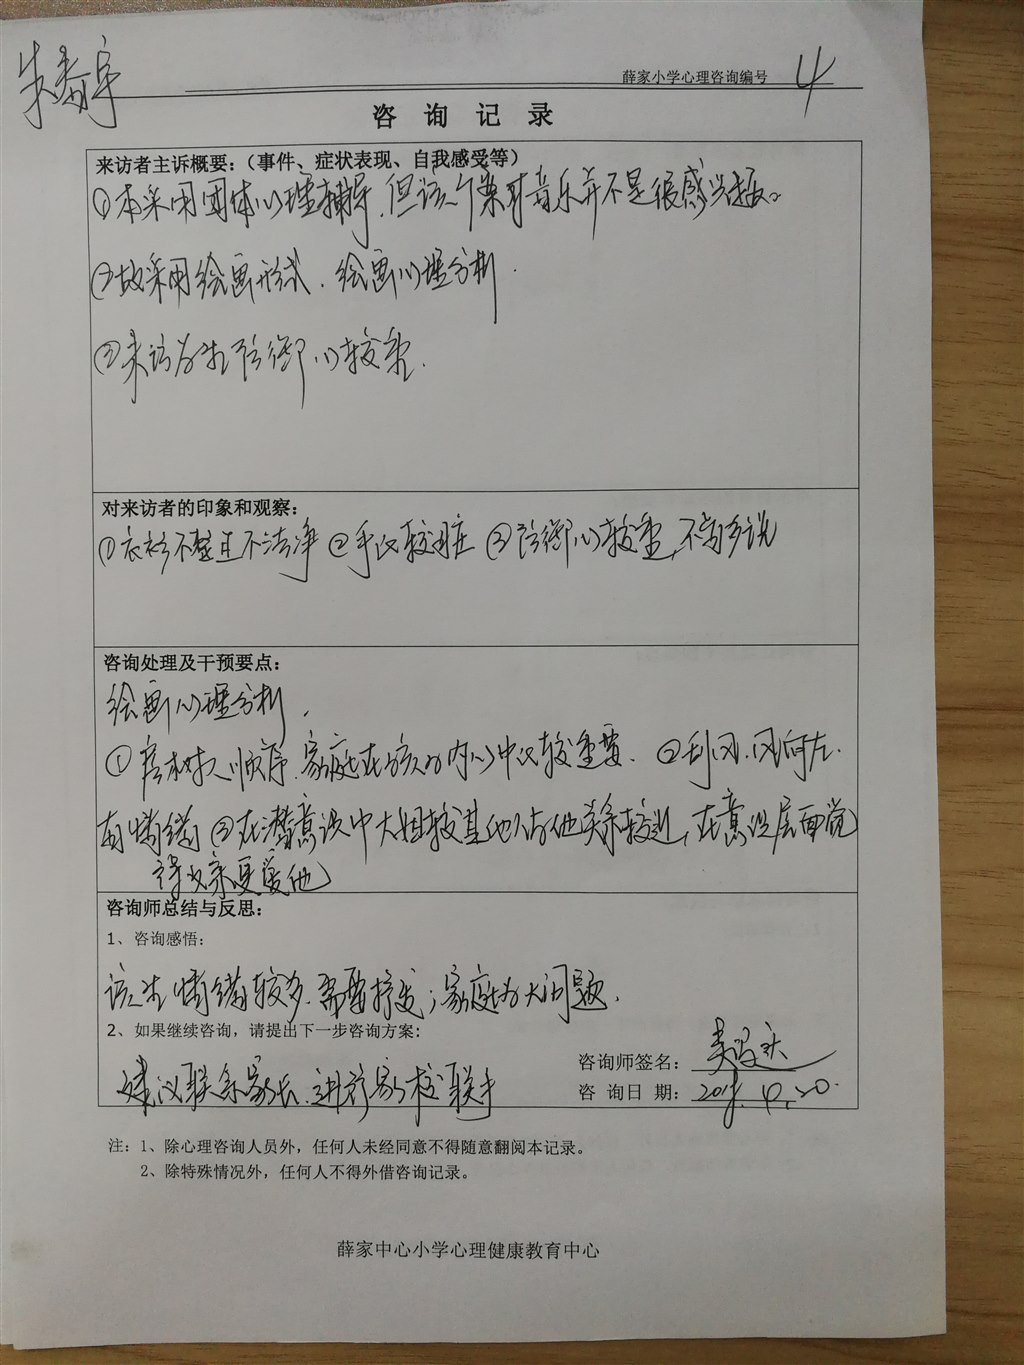 薛家小学心理咨询编号 4
咨询记录
来访者主诉概要：（事件、症状表现、自我感受等）
①本采用团体心理辅导，但该个案对音乐并不是很感兴趣。
②故采用绘画形式，绘画心理分析.
③来访者生防御心较重.
对来访者的印象和观察：
①衣衫不整且不洁净 ②手比较脏 ③防御心较重，不言多说
咨询处理及干预要点：
绘画心理分析.
①房树人顺序，家庭在孩子内心中比较重要. ②刮风，风向左.
有情绪 ③在潜意识中大姐较其他人与他关系较近，在意识层面觉
得父亲更爱他
咨询师总结与反思：
1、咨询感悟：
该生情绪较多，需要抒发；家庭为大问题.
2、如果继续咨询，请提出下一步咨询方案:
建议联系家长，进行家校联手
咨询师签名：
咨 询日 期： 4.20.
注：1、除心理咨询人员外，任何人未经同意不得随意翻阅本记录。
2、除特殊情况外，任何人不得外借咨询记录。
薛家中心小学心理健康教育中心